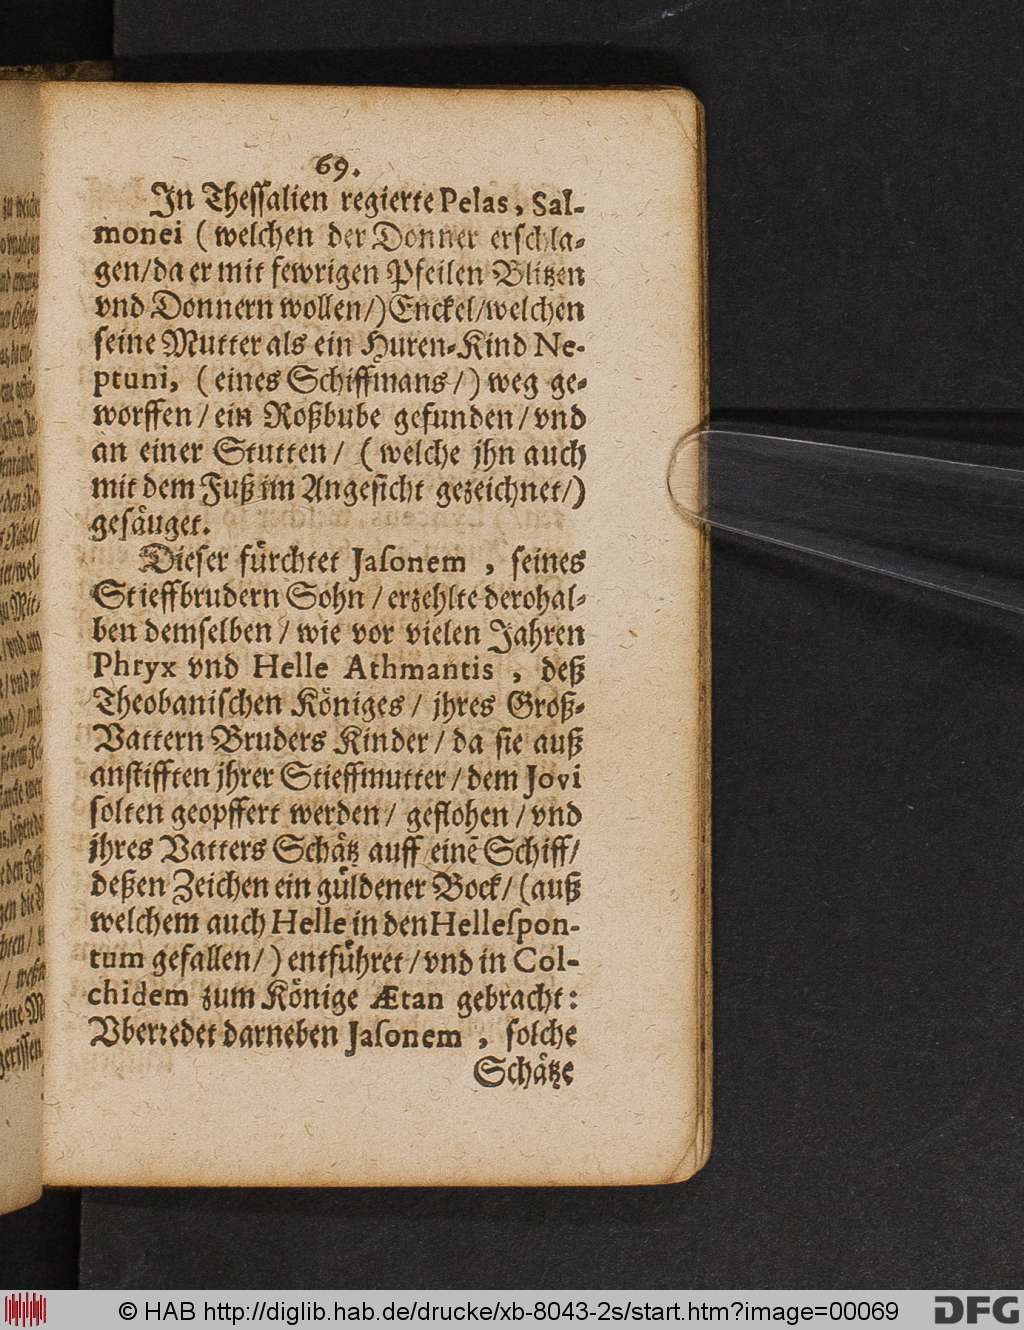 69.
In Thessalien regierte Pelas, Sal-
monei (welchen der Donner erschla-
gen/da er mit fewrigen Pfeilen Blitzen
vnd Donnern wollen/)Enckel/welchen
seine Mutter als ein Huren-Kind Ne-
ptuni, (eines Schiffmans/) weg ge-
worffen / ein Roßbube gefunden / vnd
an einer Stutten / (welche jhn auch
mit dem Fuß im Angesicht gezeichnet/)
gesäuget.
Dieser fürchtet Jasonem, seines
Stieffbrudern Sohn / erzehlte derohal-
ben demselben / wie vor vielen Jahren
Phryx vnd Helle Athmantis, deß
Theobanischen Königes / jhres Groß-
Vattern Bruders Kinder / da sie auß
anstifften jhrer Stieffmutter / dem Jovi
solten geopffert werden / geflohen / vnd
jhres Vatters Schätz auff einē Schiff/
deßen Zeichen ein güldener Bock/ (auß
welchem auch Helle in den Hellespon-
tum gefallen/) entführet / vnd in Col-
chidem zum Könige Ætan gebracht:
Vberredet darneben Jasonem, solche
Schätze
© HAB http://diglib.hab.de/drucke/xb-8043-2s/start.htm?image=00069
DFG